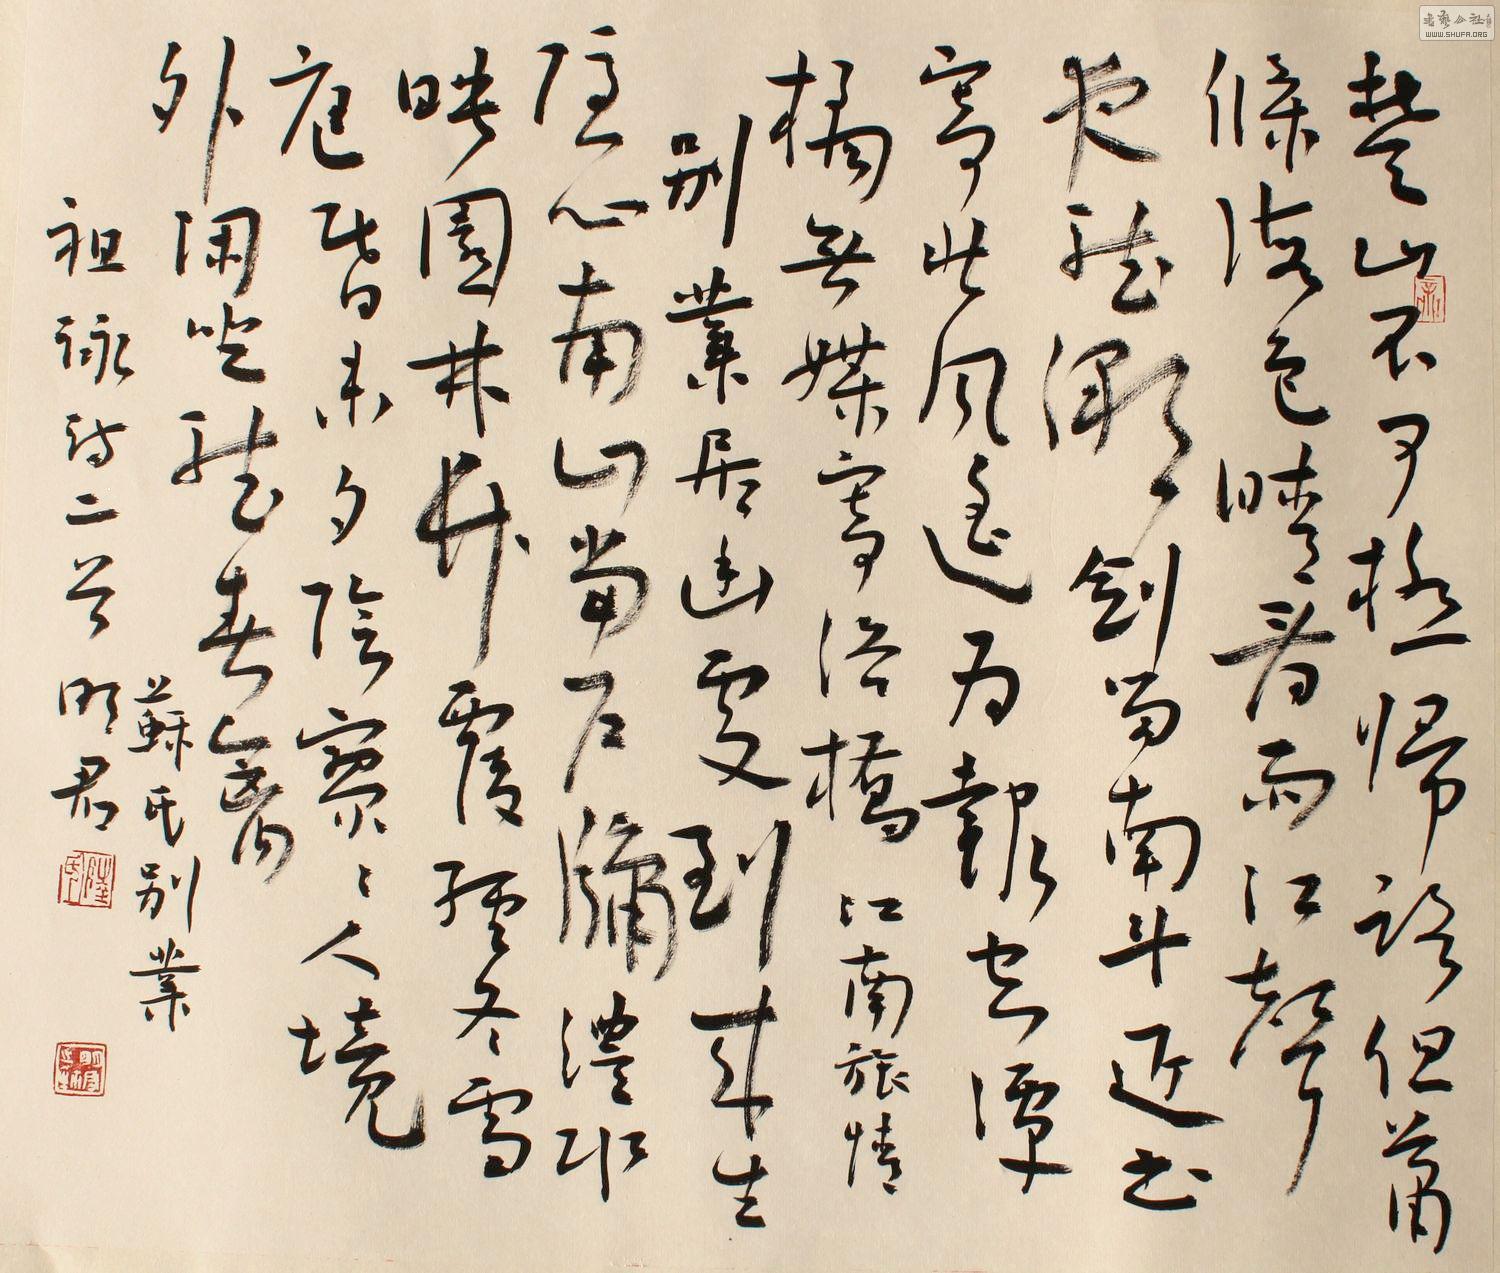 楚山不可極帰路但蕭
條海色晴看雨江聲
夜聽潮劍留南斗近書
寄北風遙為報空潭
橘無媒寄洛橋 江南旅情
別業居幽處到來生
隱心南山當戶牖澧水
映園林竹覆經冬雪
庭昏未夕陰寥々人境
外閑坐聽春禽 蘇氏別業
祖詠詩二首 明君
書藝公社
WWW.SHUFA.ORG